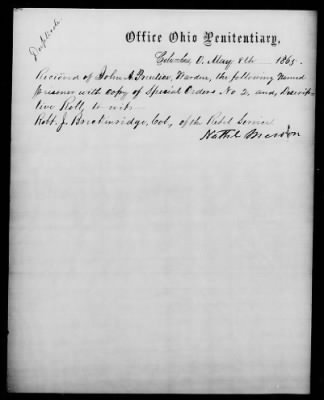 Duplicate
Office Ohio Penitentiary,
Columbus, O. May 8th 1865.
Received of John A Prentice, Warden, the following Named
prisoner with copy of Special Orders No 2, and, Descrip-
tive Roll, to wit:
Robt. J. Breckinridge, Col, of the Rebel Service
Nathl Merion